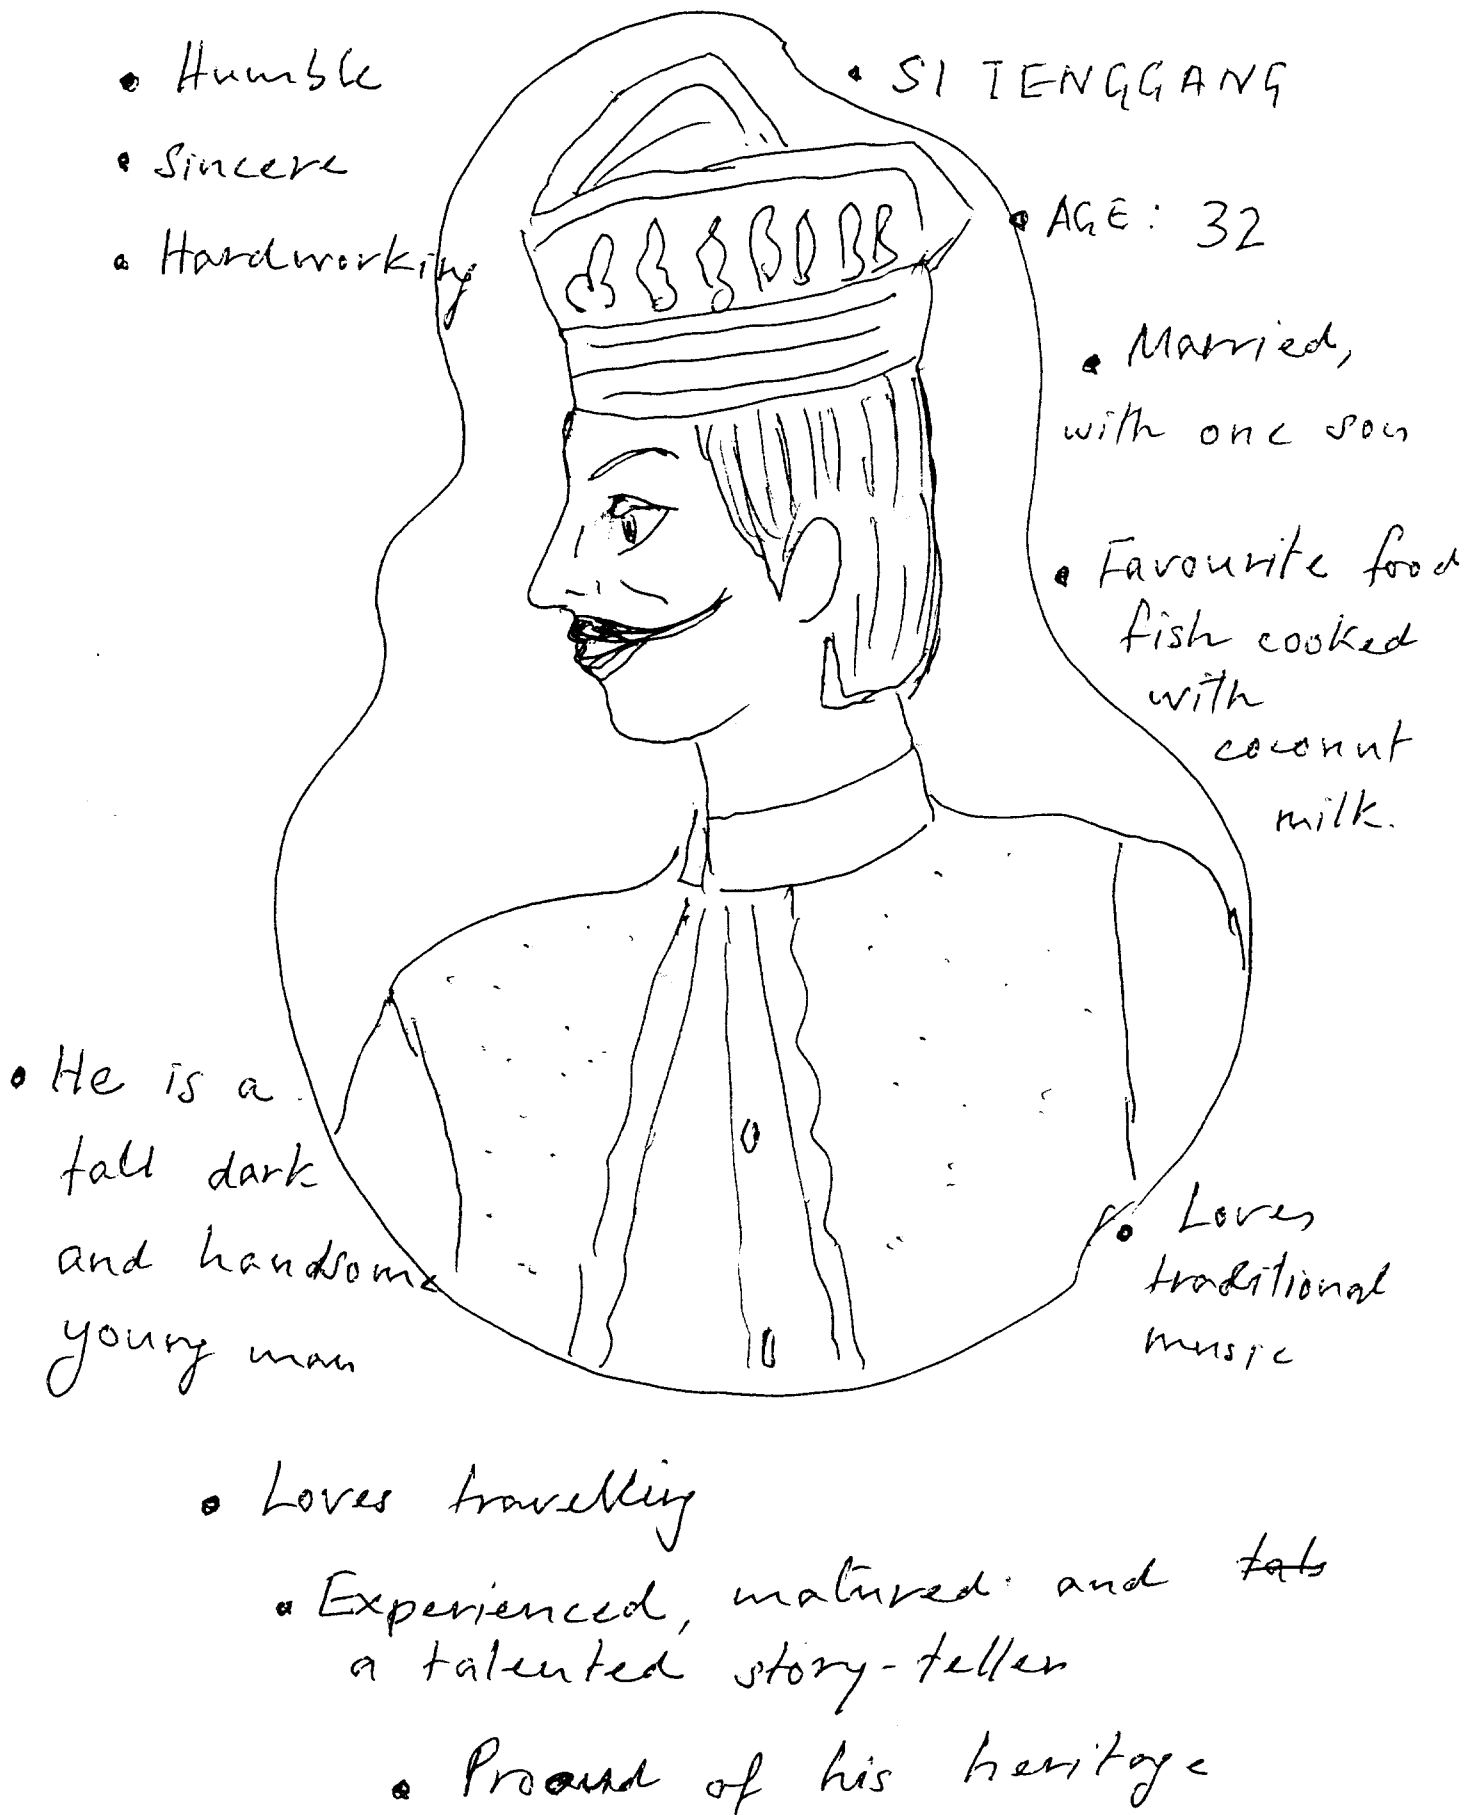 • Humble
• Sincere
• Hardworking
• SI TENGGANG
• AGE: 32
• Married,
with one son
• Favourite food
fish cooked
with
coconut
milk.
• He is a
tall dark
and handsome
young man
• Loves
traditional
music
• Loves travelling
• Experienced, matured and
a talented story-teller
• Proud of his heritage